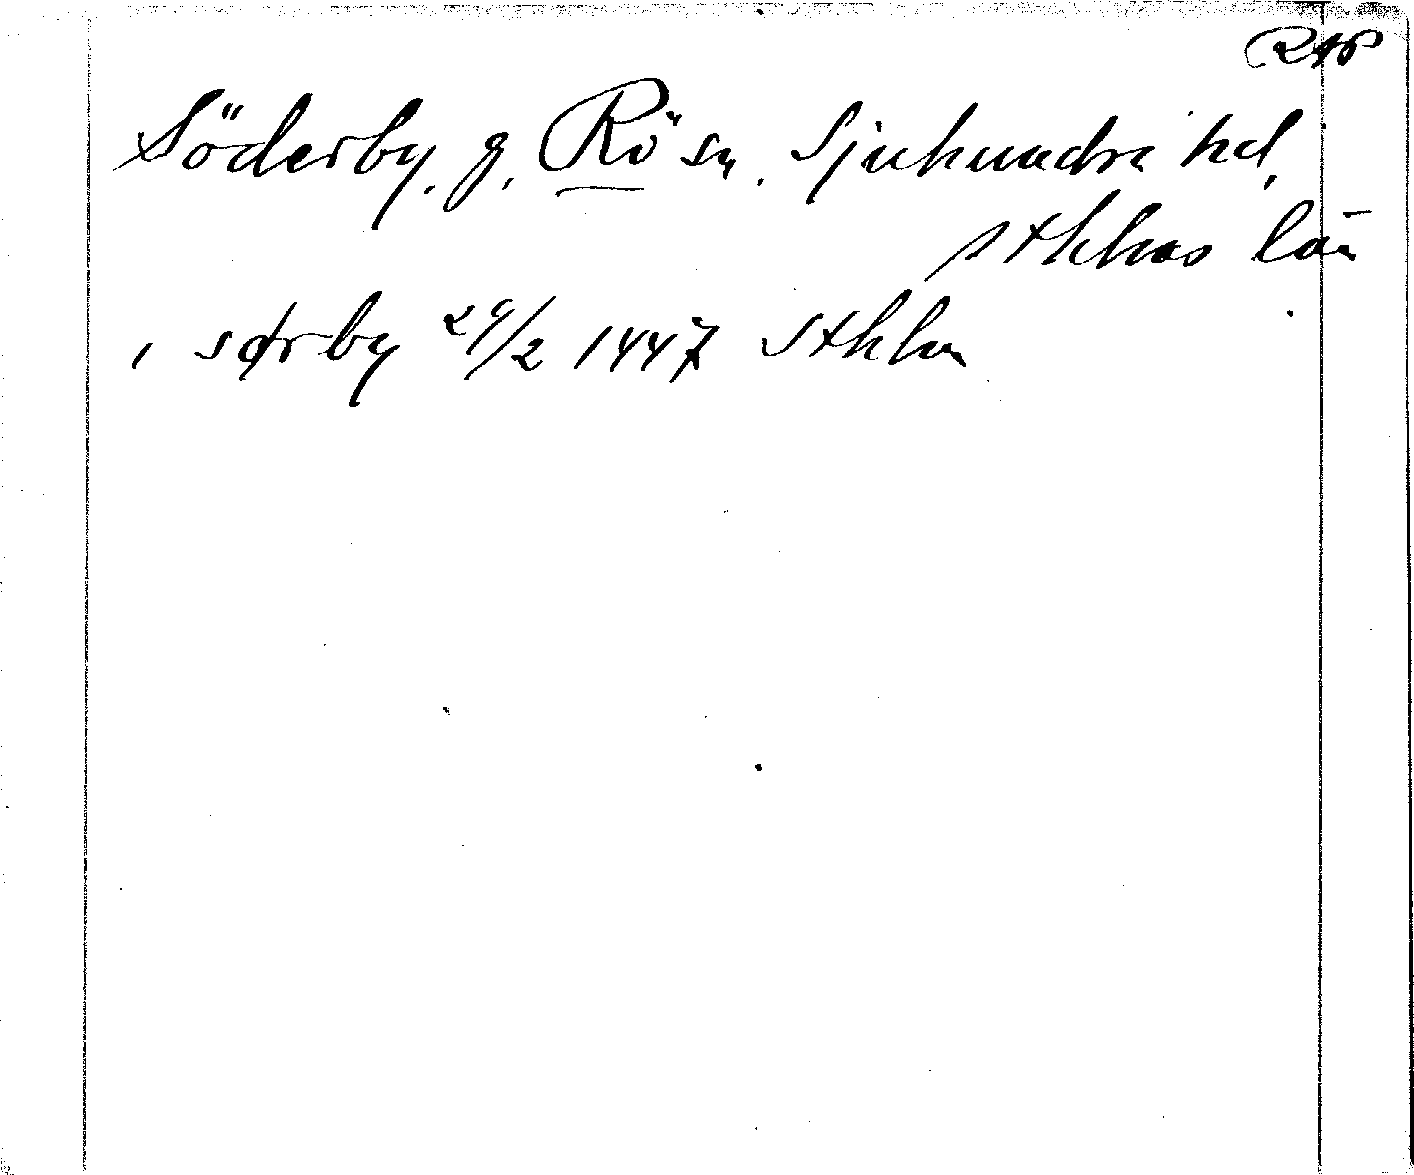 RAP
Söderby, g, Rö sn. Sjuhundra hd,
sthlms län
i sørby 29/2 1447 Sthlm